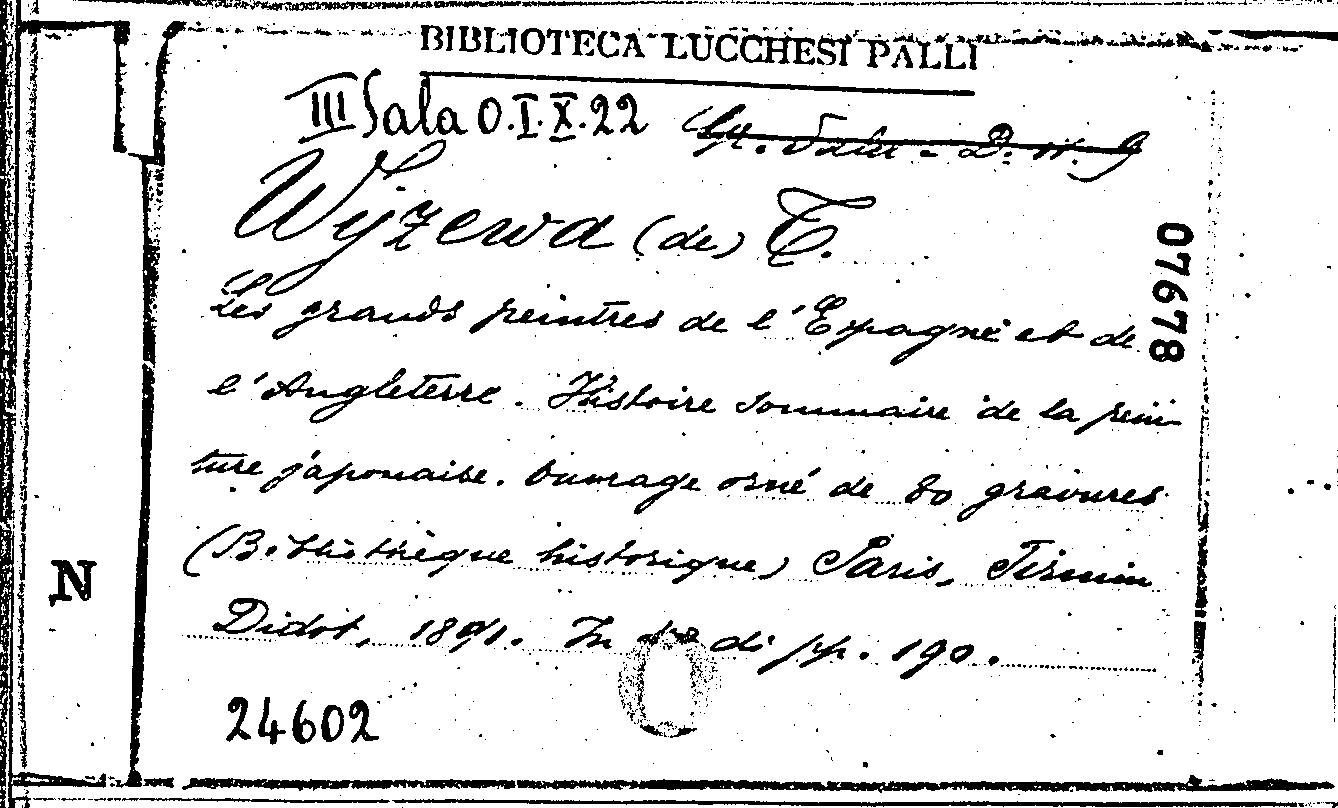 BIBLIOTECA LUCCHESI PALLI
III Sala O.I.X.22
Wyzewa (de) T.
07678
Les grands peintres de l'Espagne et de
l'Angleterre. Histoire sommaire de la pein
ture japonaise. Ouvrage orné de 80 gravures
(Bibliothèque historique) Paris, Firmin
Didot, 1891. In di pp. 190.
N
24602